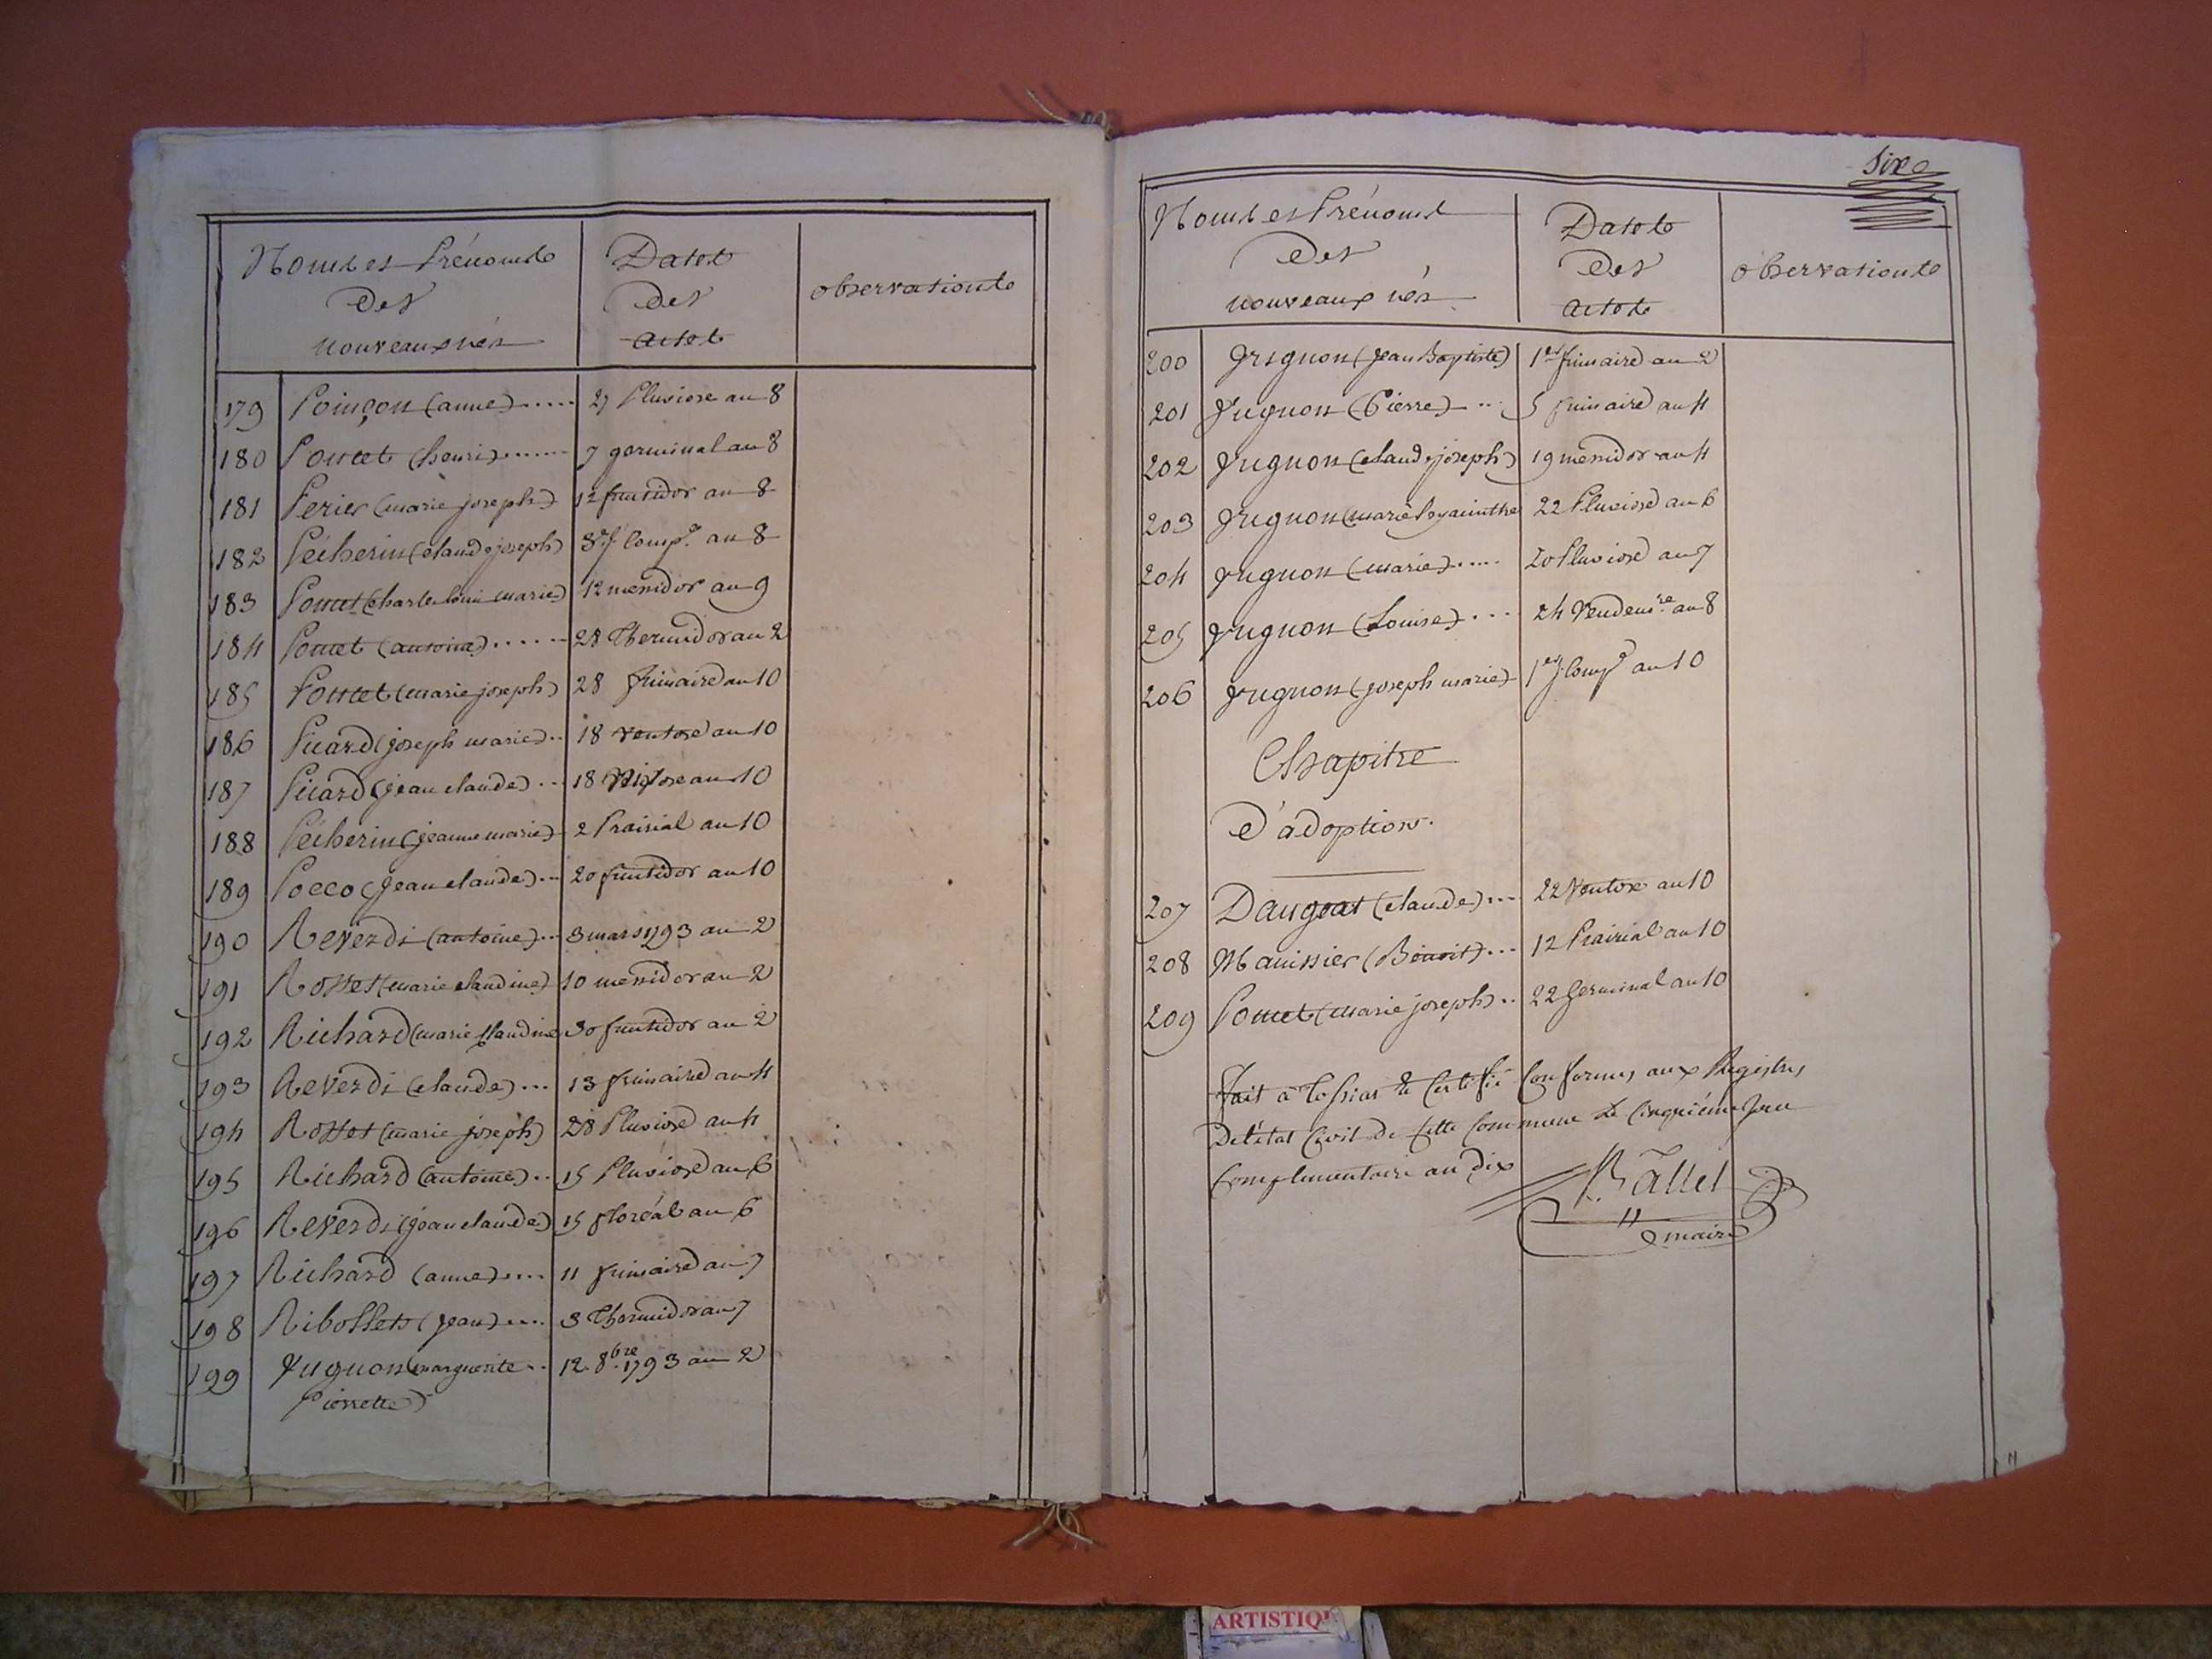 Noms et Prénoms
Des
nouveaux nés
Dates
Des
actes
observations
179 Poinçon (anne)..... 27 Pluviose an 8
180 Poncet (henri)....... 7 germinal an 8
181 Perier (marie joseph) 12 fructidor an 8
182 Pécherin (claude joseph) 3e j. comp.e an 8
183 Poncet (charle louis marie) 12 messidor an 9
184 Poncet (antoine)...... 28 Thermidor an 2
185 Poncet (marie joseph) 28 frimaire an 10
186 Picard (joseph marie).. 18 ventose an 10
187 Picard (jean claude)... 18 Nivose an 10
188 Pécherin (jeanne marie) 2 Prairial an 10
189 Pocco (jean claude)... 20 fructidor an 10
190 Reverdi (antoine)... 3 mars 1793 an 2
191 Rosset (marie claudine) 10 messidor an 2
192 Richard (marie claudine 30 fructidor an 2
193 Reverdi (claude)... 13 frimaire an 4
194 Rosset (marie joseph) 28 Pluviose an 4
195 Richard (antoine).. 15 Pluviose an 6
196 Reverdi (jean claude) 15 floréal an 6
197 Richard (anne).... 11 frimaire an 7
198 Ribollets (jean).... 3 Thermidor an 7
199 Vugnon (marguerite.. 12 8bre 1793 an 2
Pierrette)
Sixe
Noms et Prénoms
Des
nouveaux nés
Dates
Des
actes
observations
200 Vrignon (jean Baptiste) 1er frimaire an 2
201 Vugnon (Pierre)... 5 frimaire an 4
202 Vugnon (claude joseph) 19 messidor an 4
203 Vugnon (marie hyacinthe 22 Pluviose an 6
204 Vugnon (marie)..... 20 Pluviose an 7
205 Vugnon (Louise).... 24 Vendem.re an 8
206 Vugnon (joseph marie) 1er j. comp.e an 10
Chapitre
D'adoptions.
207 Daugeat (claude)... 22 Ventose an 10
208 Manissier (Benoit)... 12 Prairial an 10
209 Poncet (marie joseph).. 22 Germinal an 10
fait à Lossias et Certifié Conformes aux Registres
De l'état Civil de Cette Commune Le Cinquième Jour
Complementaire an dix
Ballet
maire
ARTISTIQU